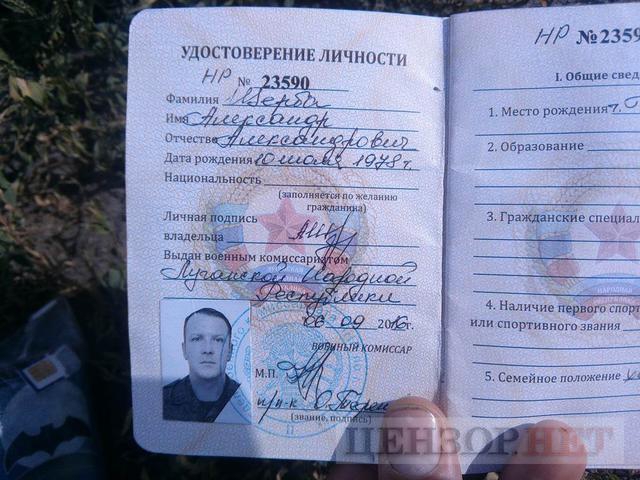 УДОСТОВЕРЕНИЕ ЛИЧНОСТИ
НР № 23590
Фамилия Щерба
Имя Александр
Отчество Александрович
Дата рождения 10 июля 1978 г.
Национальность
(заполняется по желанию
гражданина)
Личная подпись
владельца
Выдан военным комиссариатом
Луганской Народной
Республики
06 09 2016г.
ВОЕННЫЙ КОМИССАР
М.П.
п/п-к
(звание, подпись)
НР №2359
I. Общие свед
1. Место рождения г.
2. Образование
3. Гражданские специал
4. Наличие первого спорт
или спортивного звания
5. Семейное положение
ЦЕНЗОР.НЕТ